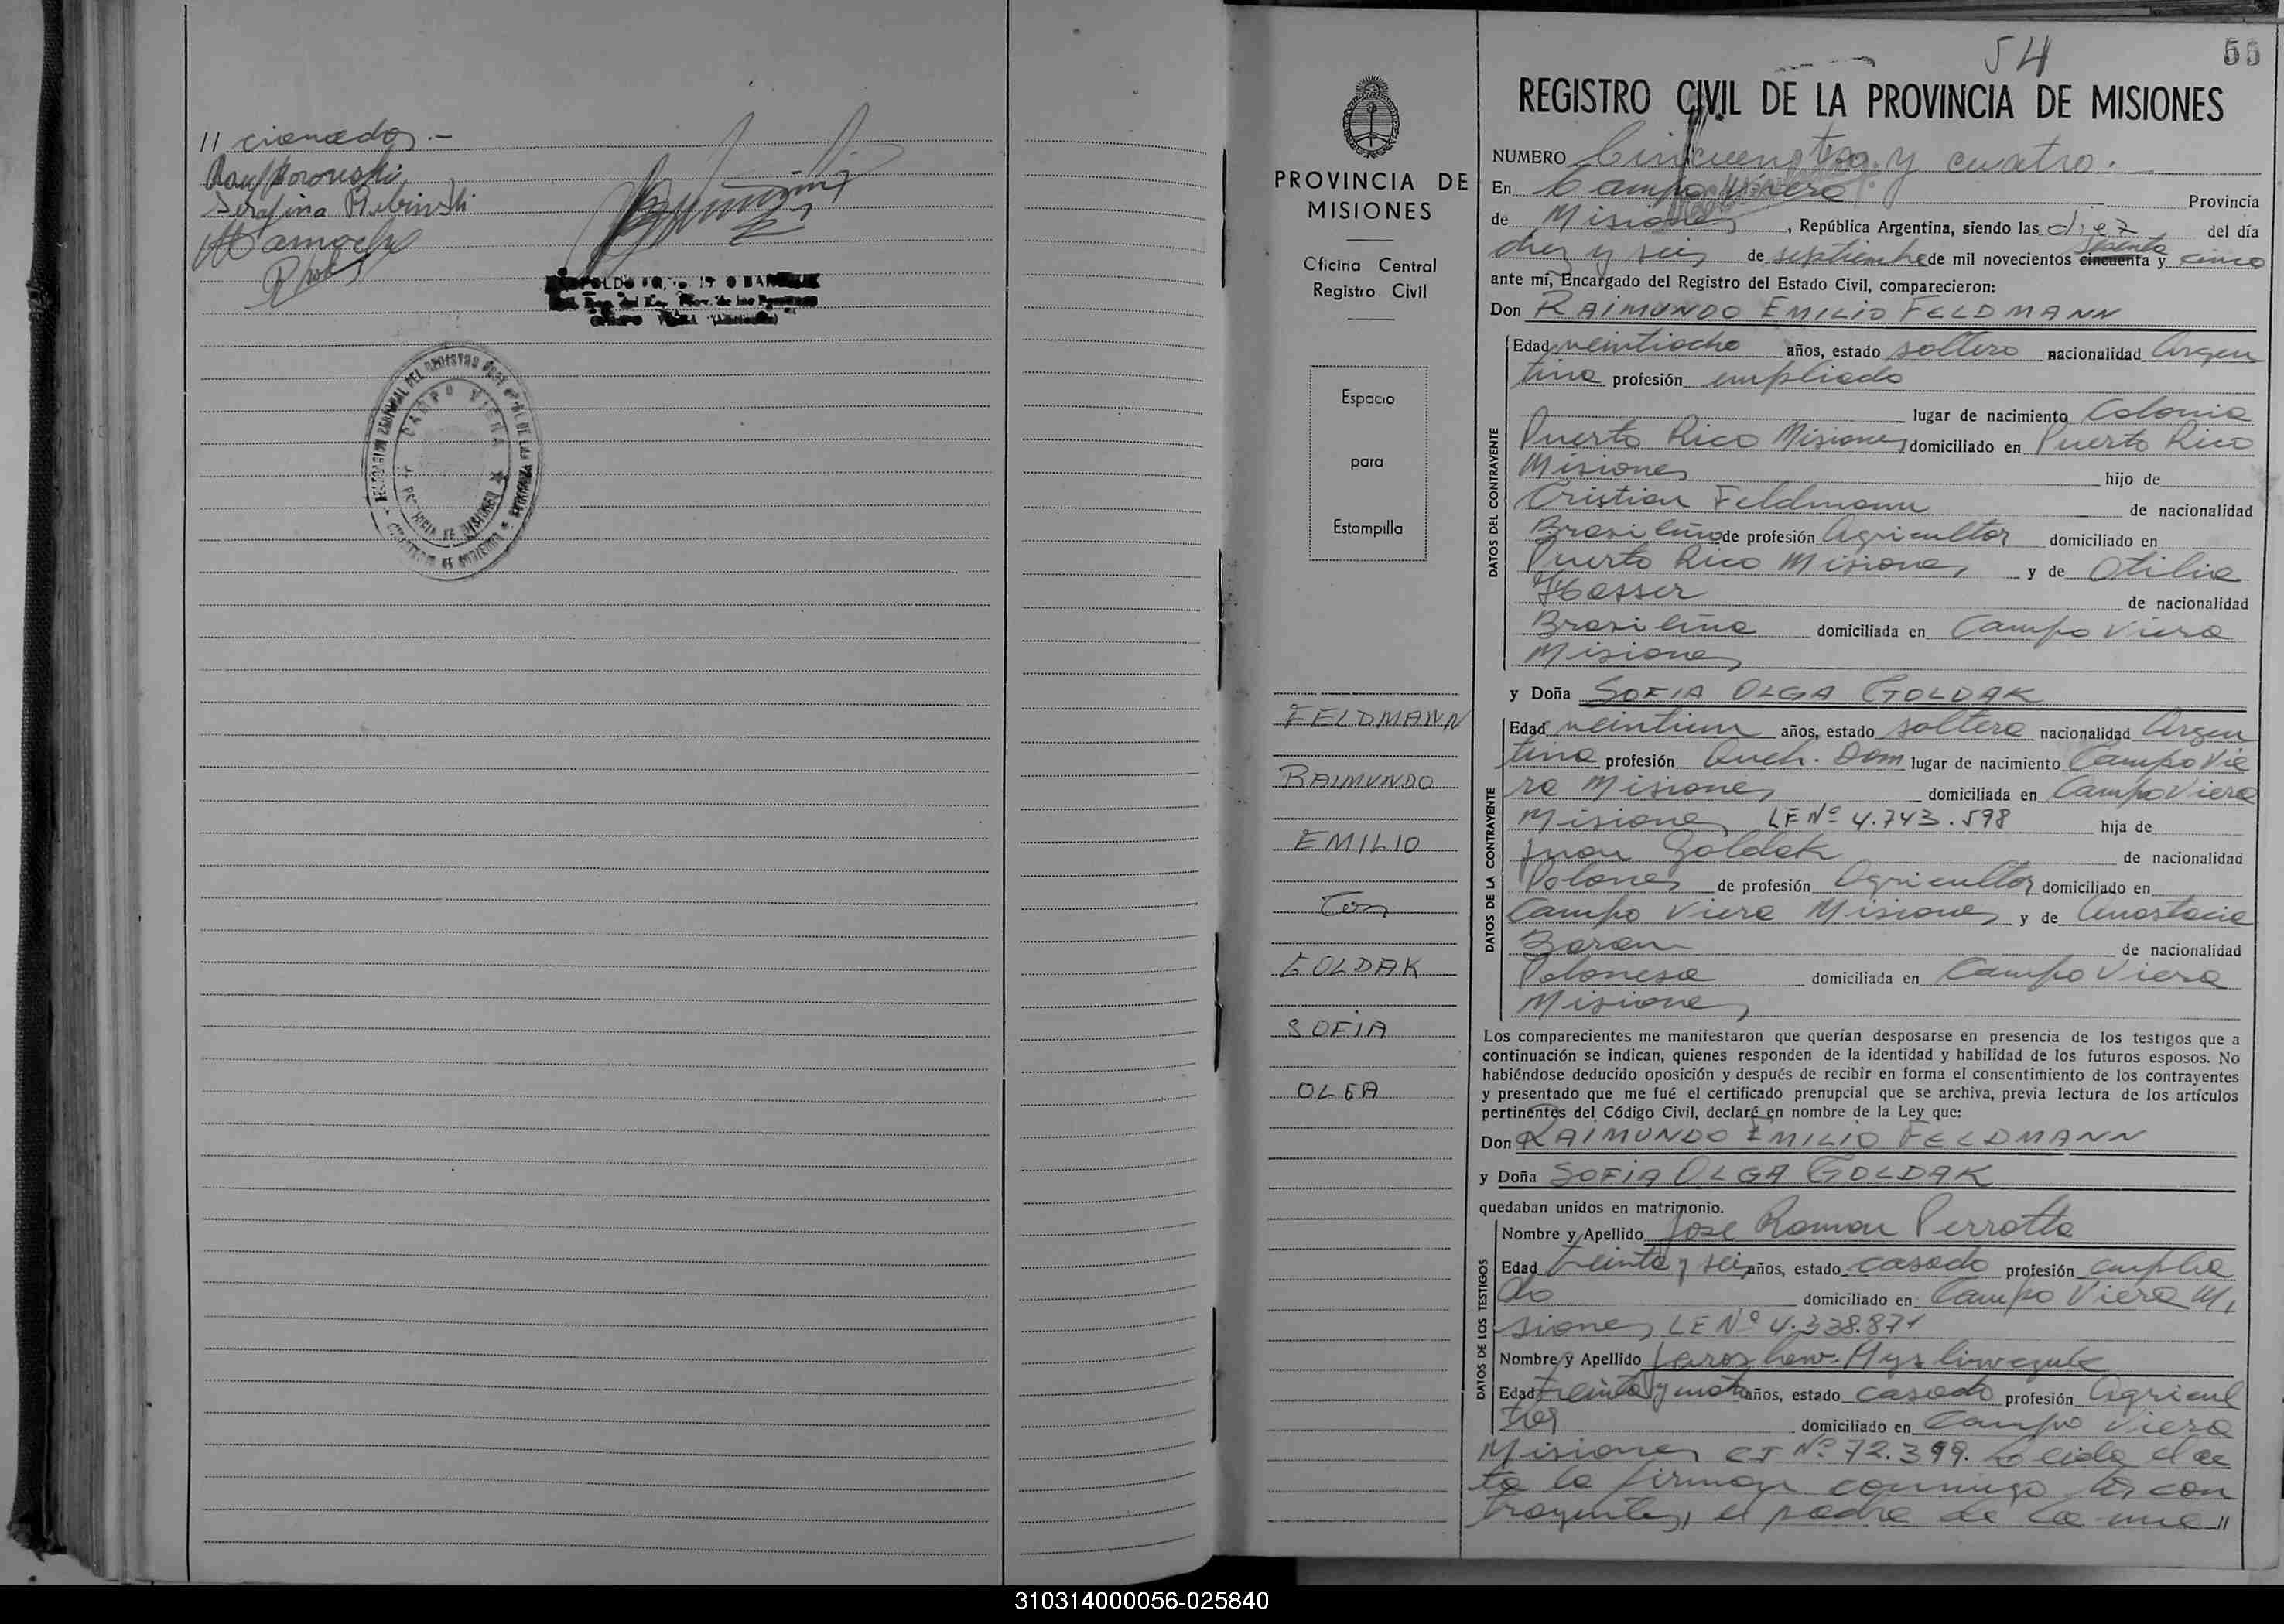 // cionados.-
Serafina Rebinski
CAMPO VIERA
PROVINCIA DE MISIONES
Oficina Central
Registro Civil
Espacio
para
Estampilla
FELDMANN
RAIMUNDO
EMILIO
Con
GOLDAK
SOFIA
OLGA
54
55
REGISTRO CIVIL DE LA PROVINCIA DE MISIONES
NUMERO Cincuenta y cuatro.-
En Campo Viera Provincia
de Misiones, República Argentina, siendo las diez del día
diez y seis de septiembre de mil novecientos cincuenta sesenta y cinco
ante mí, Encargado del Registro del Estado Civil, comparecieron:
Don RAIMUNDO EMILIO FELDMANN
DATOS DEL CONTRAYENTE
Edad veintiocho años, estado soltero nacionalidad Argen
tina profesión empleado
lugar de nacimiento Colonia
Puerto Rico Misiones domiciliado en Puerto Rico
Misiones hijo de
Cristian Feldmann de nacionalidad
Brasileño de profesión Agricultor domiciliado en
Puerto Rico Misiones y de Otilia
de nacionalidad
Brasileña domiciliada en Campo Viera
Misiones
y Doña SOFIA OLGA GOLDAK
DATOS DE LA CONTRAYENTE
Edad veintiun años, estado soltera nacionalidad Argen
tina profesión Queh. Dom lugar de nacimiento Campo Vie
ra Misiones domiciliada en Campo Viera
Misiones LE Nº 4.743.598 hija de
Juan Goldak de nacionalidad
Polones de profesión Agricultor domiciliado en
Campo Viera Misiones y de Anastacia
Baran de nacionalidad
Polonesa domiciliada en Campo Viera
Misiones
Los comparecientes me manifestaron que querían desposarse en presencia de los testigos que a
continuación se indican, quienes responden de la identidad y habilidad de los futuros esposos. No
habiéndose deducido oposición y después de recibir en forma el consentimiento de los contrayentes
y presentado que me fué el certificado prenupcial que se archiva, previa lectura de los artículos
pertinentes del Código Civil, declaré en nombre de la Ley que:
Don RAIMUNDO EMILIO FELDMANN
y Doña SOFIA OLGA GOLDAK
quedaban unidos en matrimonio.
DATOS DE LOS TESTIGOS
Nombre y Apellido Jose Ramon Perrotta
Edad treinta y seis años, estado casado profesión emplea
do domiciliado en Campo Viera Mi
siones LE Nº 4.338.871
Nombre y Apellido
Edad treinta y años, estado casado profesión Agricul
tor domiciliado en Campo Viera
Misiones CI Nº 72.399. Leida el ac
ta la firman conmigo los con
trayentes, el padre de la me //
310314000056-025840